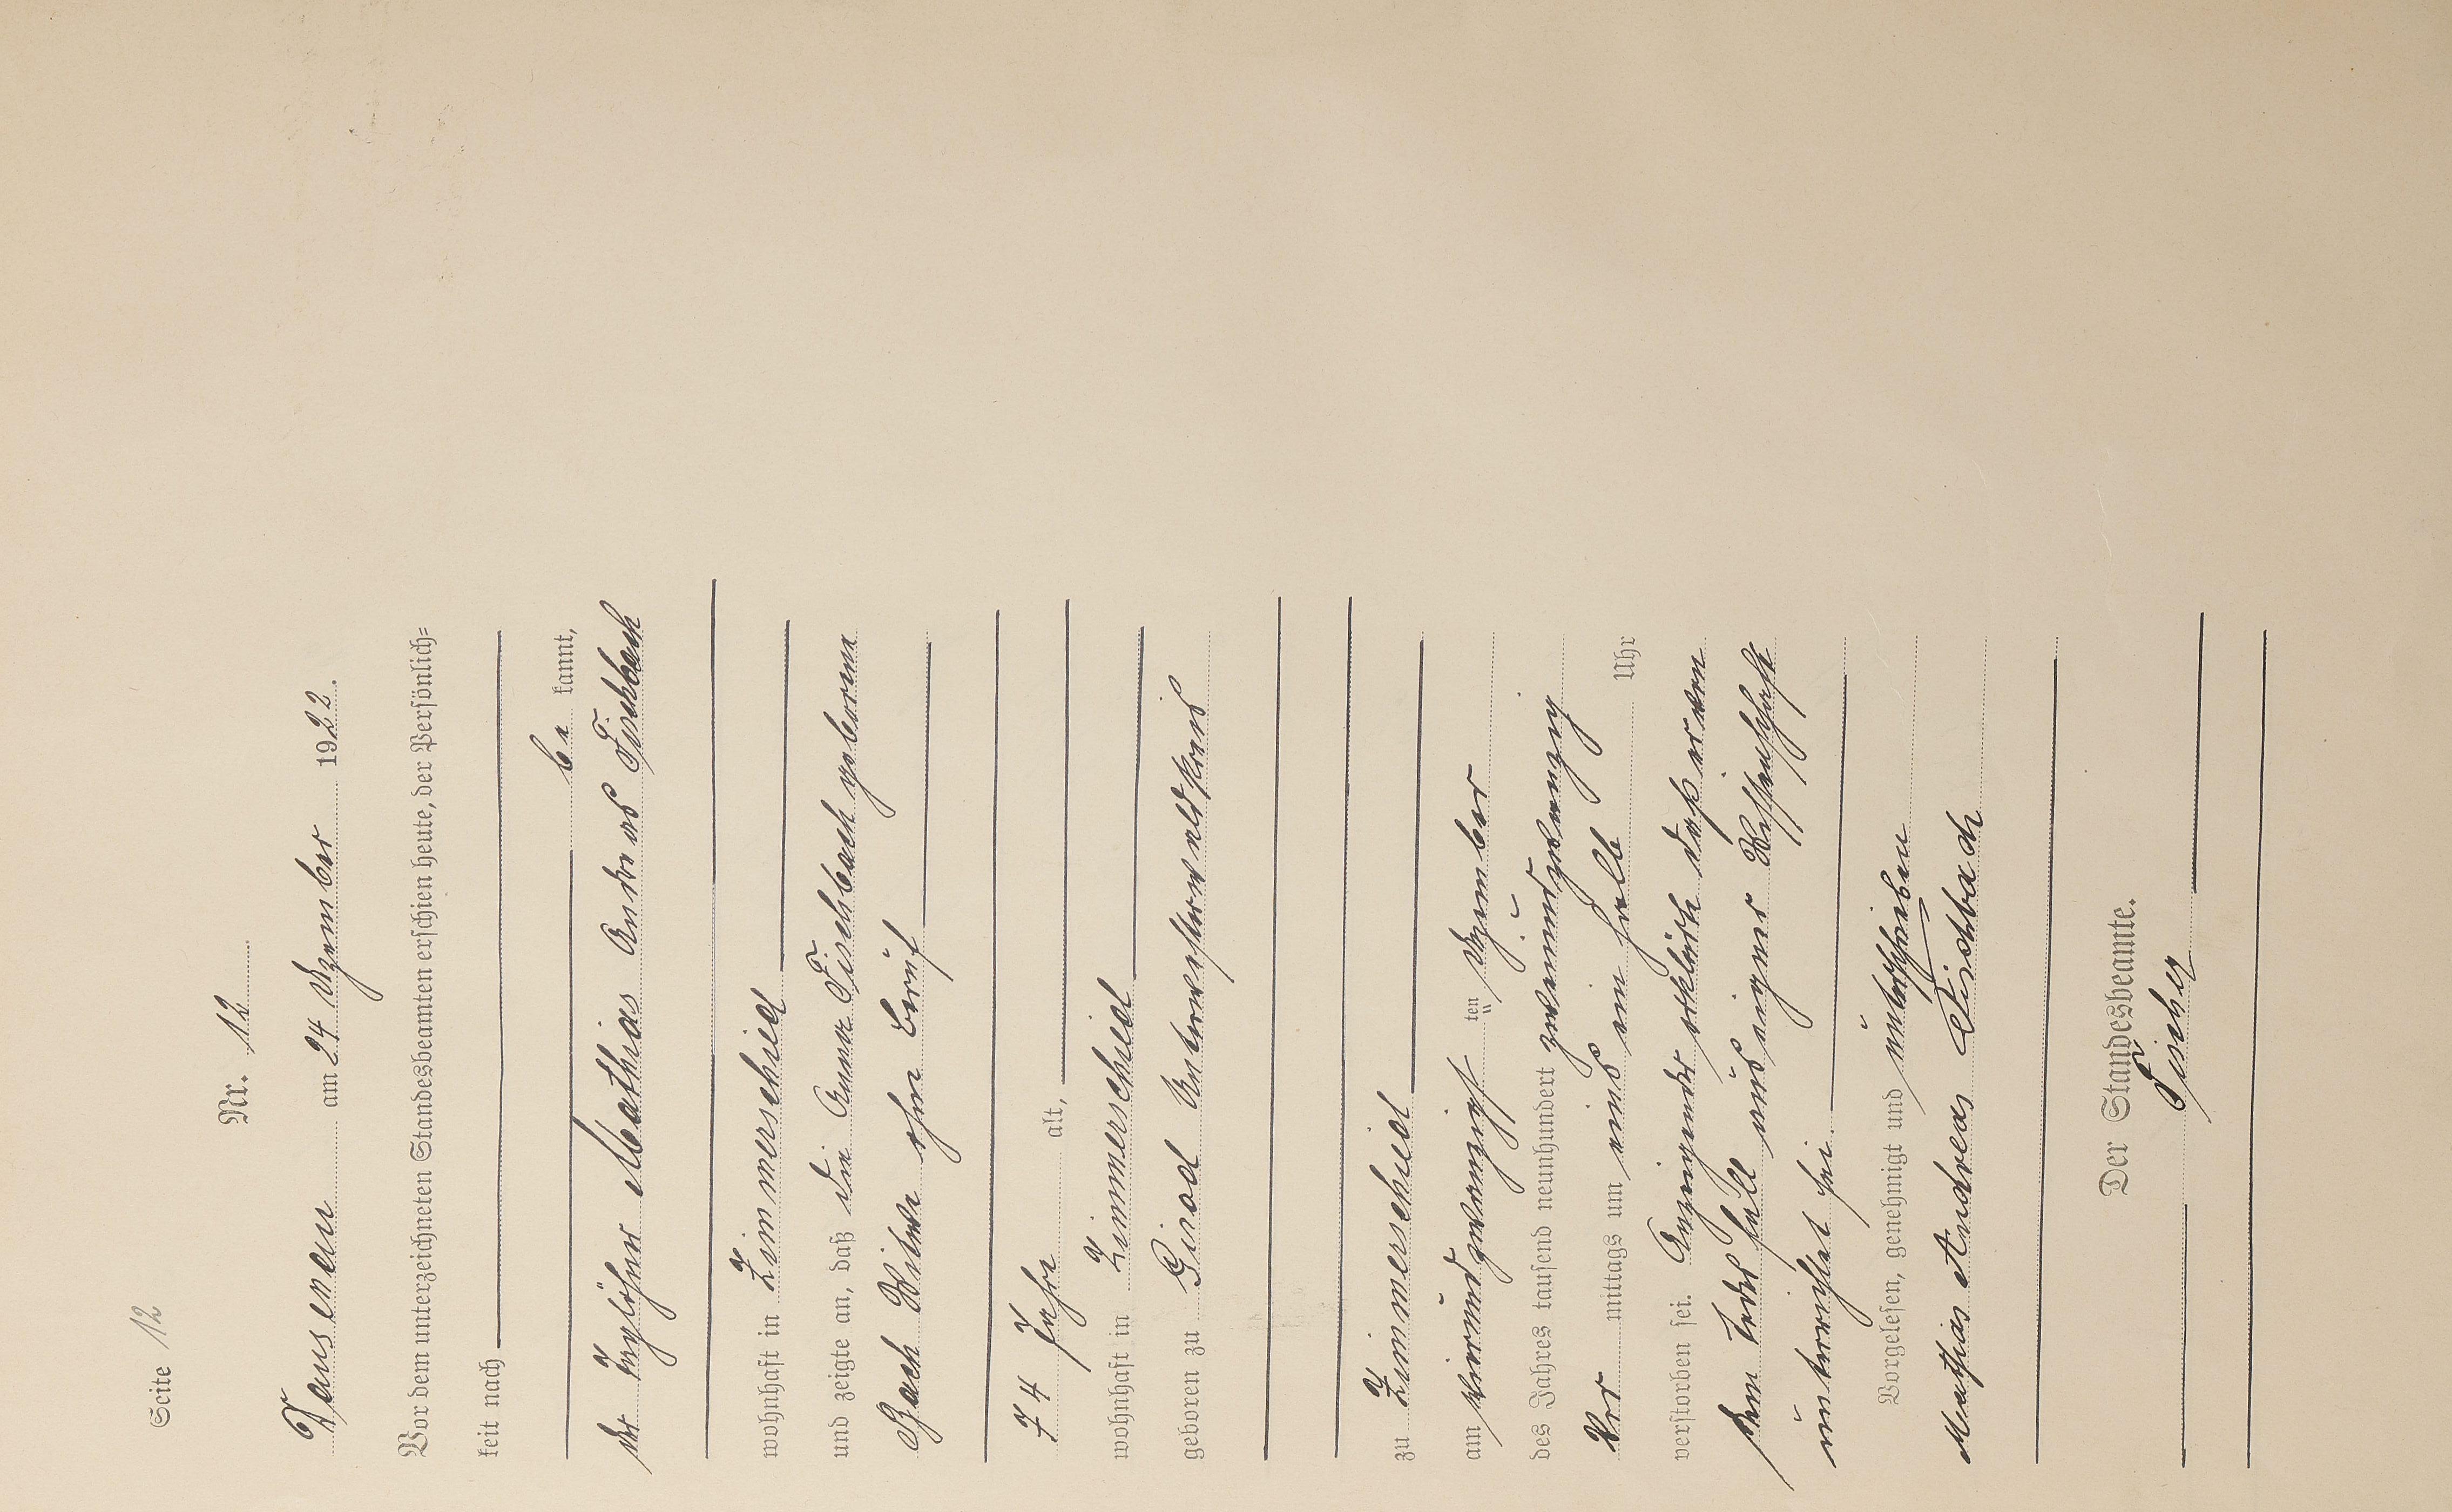 Seite 12
Nr. 12
Dausenau am 24 Dezember 1922.
Vor dem unterzeichneten Standesbeamten erschien heute, der Persönlich=
keit nach
be kannt,
der Taglöhner Mathias Andreas Fischbach
wohnhaft in Zimmerschied
und zeigte an, daß die Anna Fischbach geborene
Bach Witwe ohne Beruf
74 Jahre alt,
wohnhaft in Zimmerschied
geboren zu Girod Unterwesterwaldkreis
zu Zimmerschied
am vierundzwanzigst ten Dezember
des Jahres tausend neunhundert zweiundzwanzig
Vor mittags um eins ein halb Uhr
verstorben sei. Anzeigender erklärte daß er von
dem Todesfall aus eigner Wissenschaft
unterrichtet sei.
Vorgelesen, genehmigt und unterschrieben
Mathias Andreas Fischbach
Der Standesbeamte.
Fischer